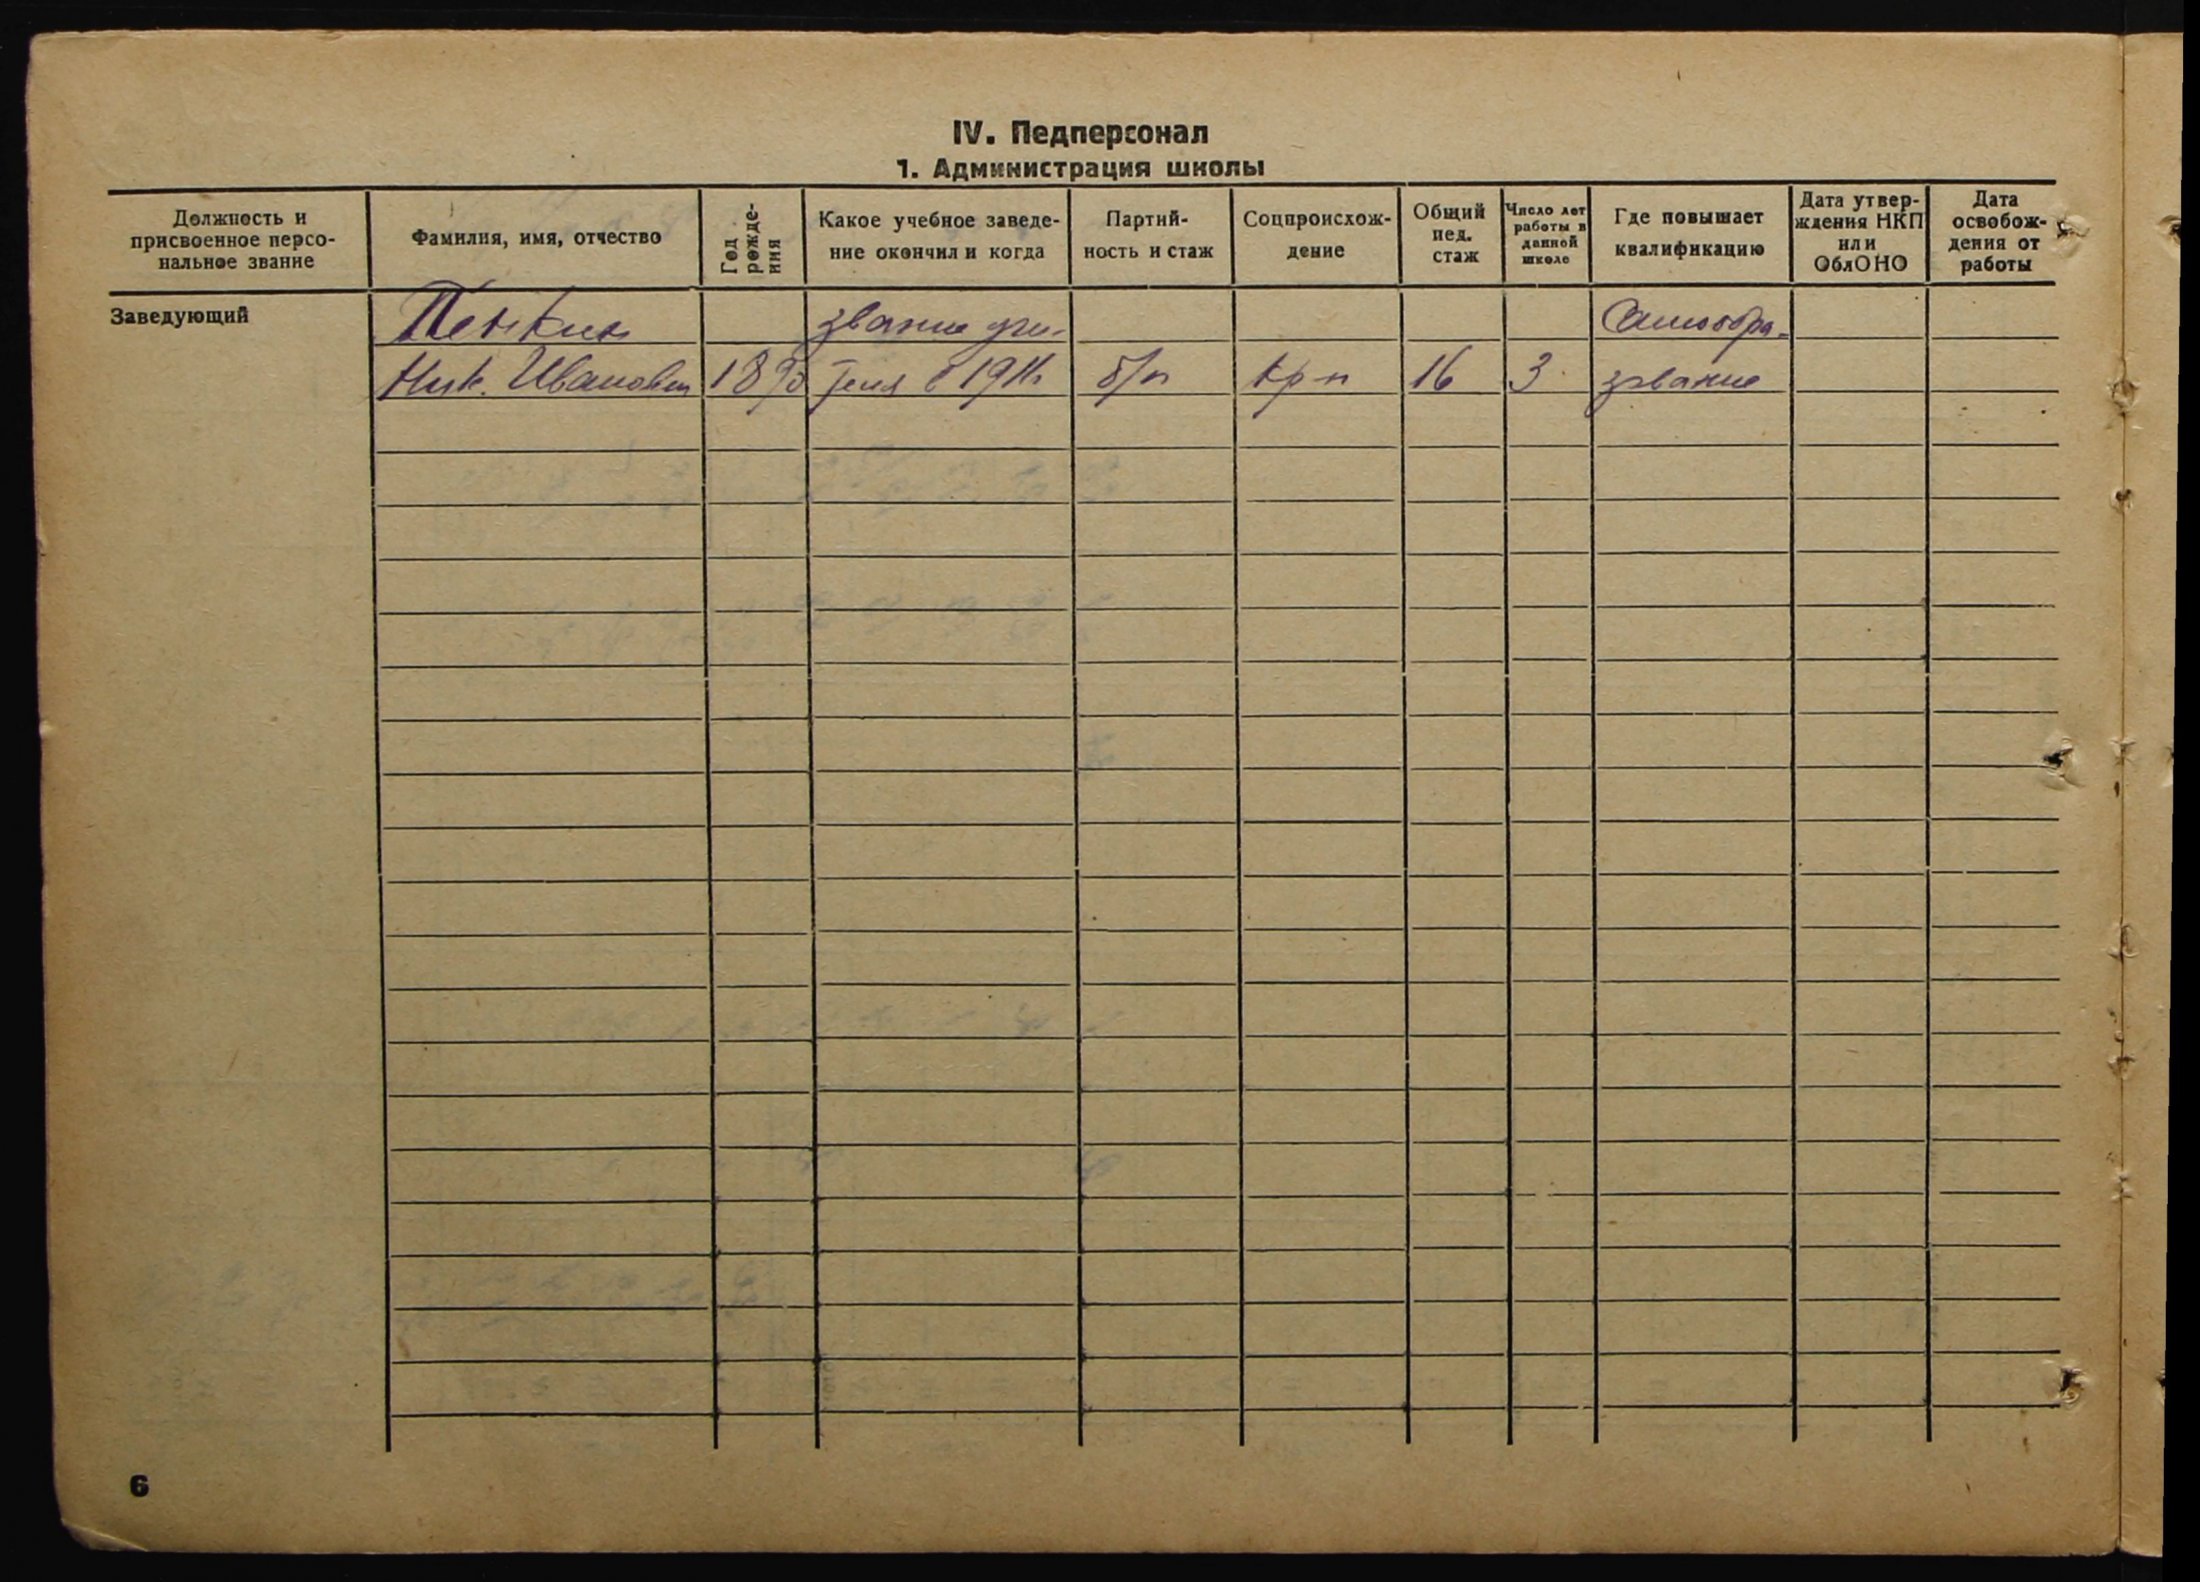 IV. Педперсонал
1. Администрация школы
Должность и
присвоенное персо-
нальное звание
Фамилия, имя, отчество
Год
рожде-
ния
Какое учебное заведе-
ние окончил и когда
Партий-
ность и стаж
Соцпроисхож-
дение
Общий
пед.
стаж
Число лет
работы в
данной
школе
Где повышает
квалификацию
Дата утвер-
ждения НКП
или
ОблОНО
Дата
освобож-
дения от
работы
Заведующий
Пенкин звание учи- Самообра-
Ник. Иванович 1890 теля в 1911г б/п кр-н 16 3 зование
6